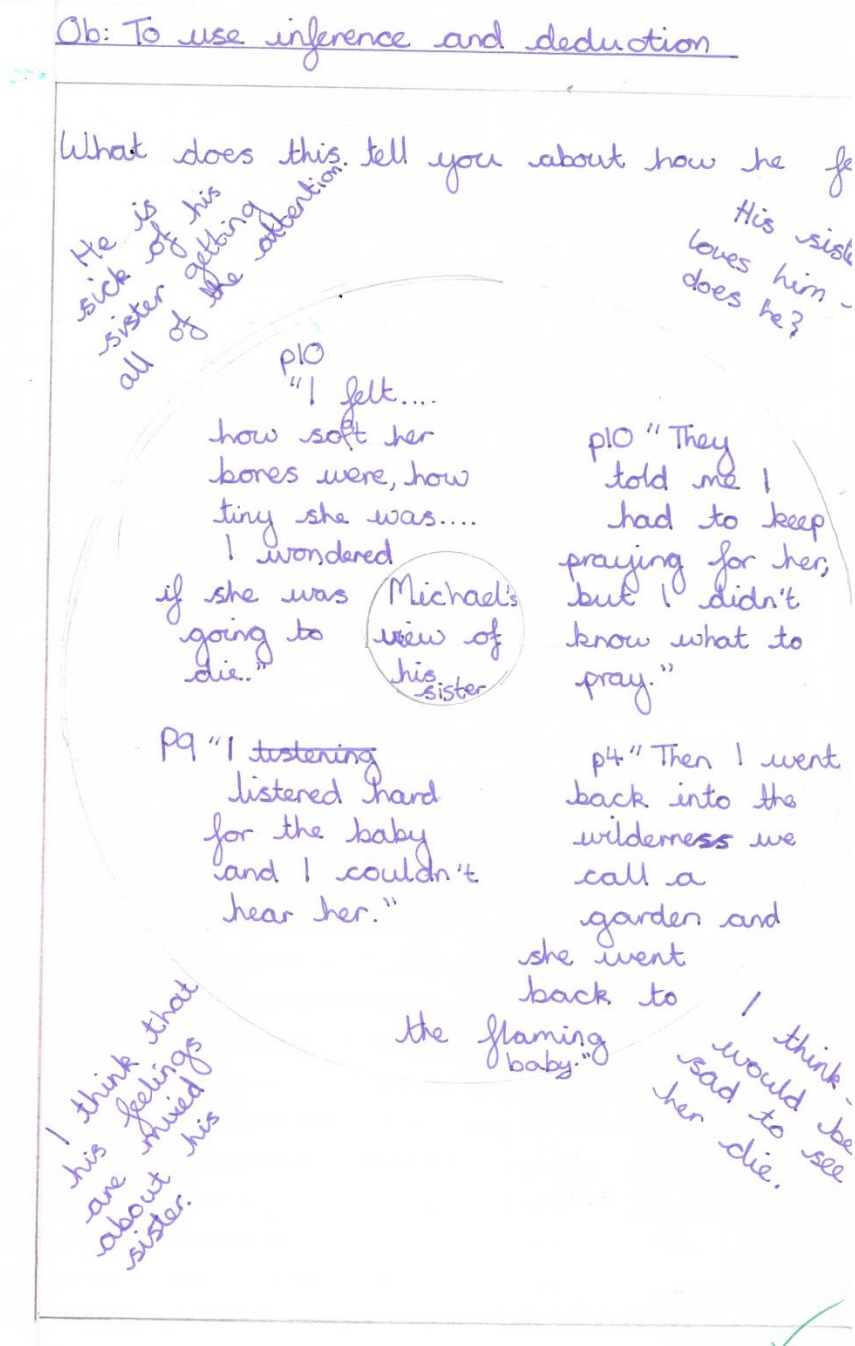 Ob: To use inference and deduction
What does this tell you about how he
He is
sick of his
sister getting
all of the attention.
His
loves him
does he?
p10
"I felt....
how soft her
bones were, how
tiny she was....
I wondered
if she was
going to
die."
p10 "They
told me I
had to keep
praying for her,
but I didn't
know what to
pray."
Michael's
view of
his
sister
p9 "I listening
listered hard
for the baby
and I couldn't
hear her."
p4 "Then I went
back into the
wilderness we
call a
garden and
she went
back to
the flaming
baby."
I think that
his feelings
are mixed
about his
sister.
I think
would be
sad to see
her die.